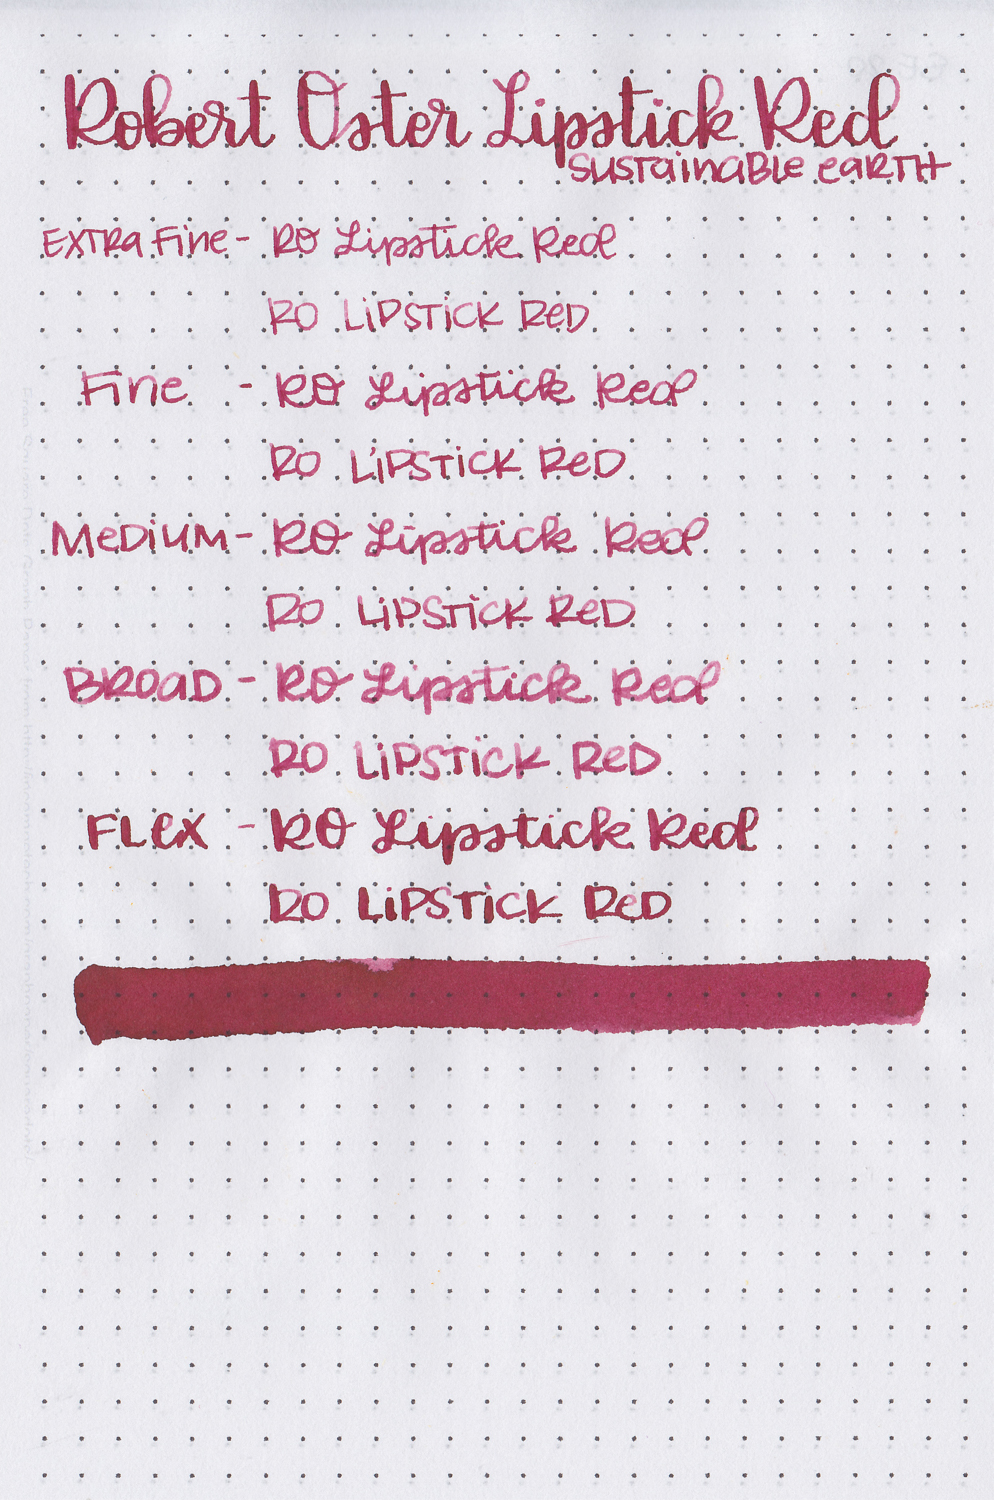 Robert Oster Lipstick Red
Sustainable Earth
Extra Fine - RO Lipstick Red
RO Lipstick Red
Fine - RO Lipstick Red
RO Lipstick Red
Medium - RO Lipstick Red
RO Lipstick Red
Broad - RO Lipstick Red
RO Lipstick Red
Flex - RO Lipstick Red
RO Lipstick Red